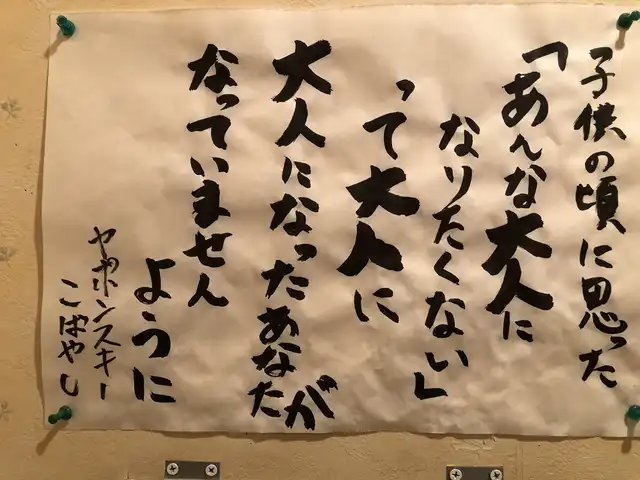 子供の頃に思った
「あんな大人に
なりたくない」
って大人に
大人になったあなたが
なっていません
ように
ヤポンスキー
こばやし